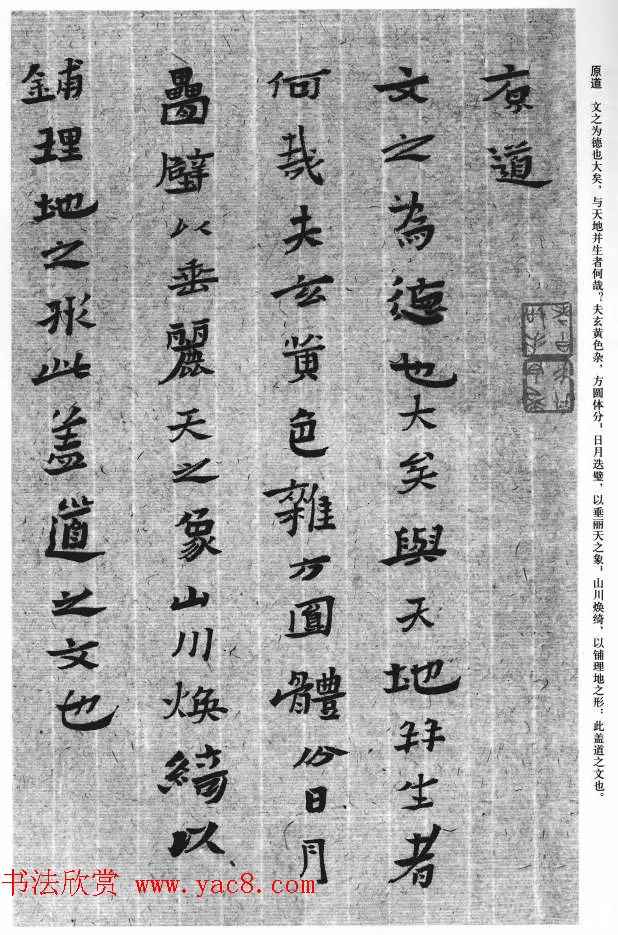 原道 文之为德也大矣，与天地并生者何哉？夫玄黄色杂，方圆体分，日月迭璧，以垂丽天之象；山川焕绮，以铺理地之形；此盖道之文也。
原道
文之為德也大矣與天地并生者
何哉夫玄黄色雜方圓體份日月
疊璧以垂麗天之象山川焕綺以
鋪理地之形此盖道之文也
书法欣赏 www.yac8.com